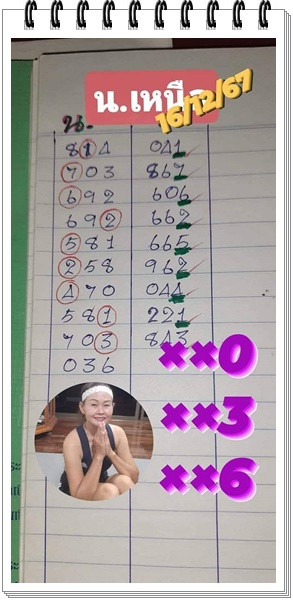 น.เหนือ
16/12/67
น.
814 041
703 867
692 606
692 662
581 665
258 962
470 044
581 221
703 843
036
××0
××3
××6